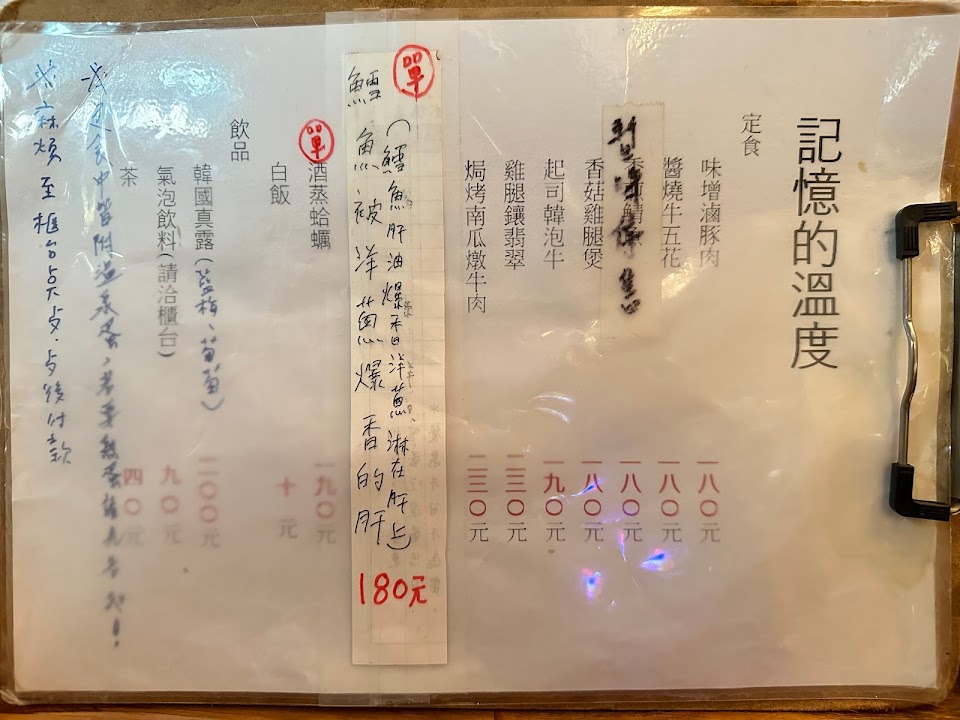 記憶的溫度
定食
味增滷豚肉 一八〇元
醬燒牛五花 一八〇元
一八〇元
香菇雞腿煲 一八〇元
起司韓泡牛 一九〇元
雞腿鑲翡翠 二三〇元
焗烤南瓜燉牛肉 二三〇元
單
(鱈魚肝油爆香洋蔥、淋在肝上)
鱈魚被洋蔥爆香的肝 180元
單 酒蒸蛤蠣 一九〇元
白飯 十元
飲品
韓國真露(藍梅、葡萄) 二〇〇元
氣泡飲料(請洽櫃台) 九〇元
茶 四〇元
※定食中皆附溫泉蛋，若要熟蛋請先告知!
※麻煩至櫃台点